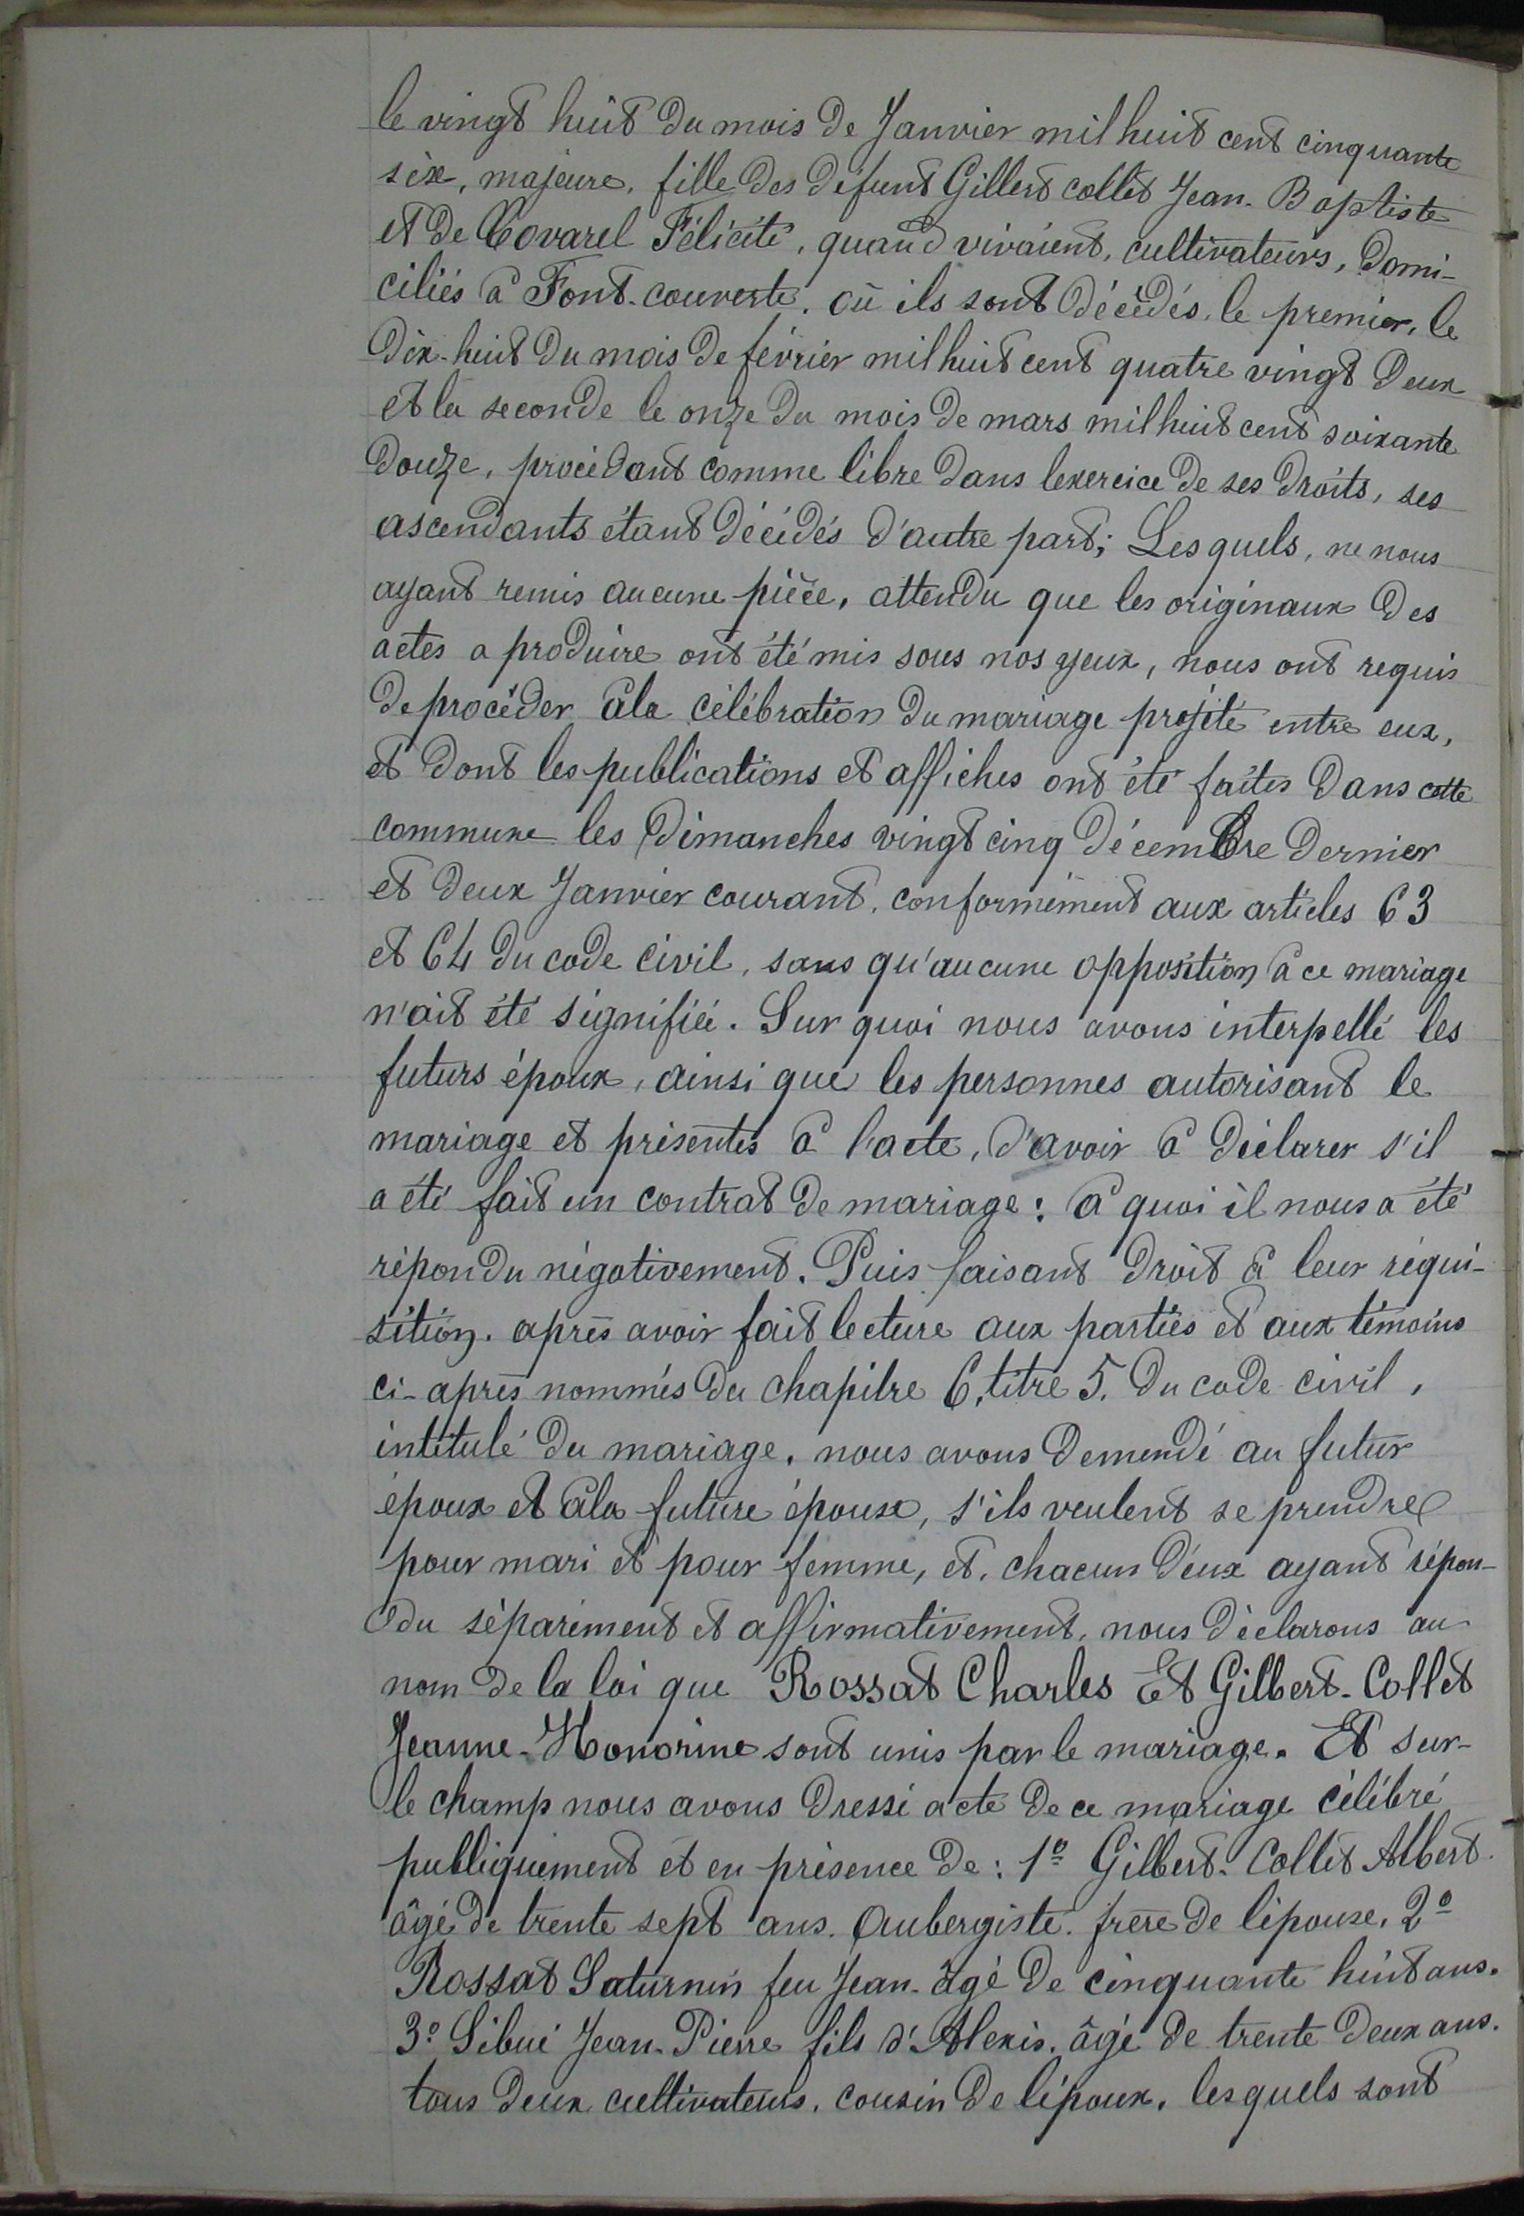 le vingt huit du mois de Janvier mil huit cent cinquante
six, majeure, fille des défunt Gillert collet Jean-Baptiste
et de Covarel Félicité, quand vivaient, cultivateurs, domi-
ciliés à Font-couverte, où ils sont décédés, le premier, le
dix-huit du mois de février mil huit cent quatre vingt deux
et la seconde le onze du mois de mars mil huit cent soixante
douze, procédant comme libre dans lexercice de ses droits, ses
ascendants étant décédés d'autre part; Lesquels, ne nous
ayant remis aucune pièce, attendu que les originaux des
actes a produire ont été mis sous nos yeux, nous ont requis
de procéder à la célébration du mariage projeté entre eux,
et dont les publications et affiches ont été faites dans cette
commune les dimanches vingt cinq décembre dernier
et deux Janvier courant, conformément aux articles 63
et 64 du code civil, sans qu'aucune opposition à ce mariage
n'ait été signifiée. Sur quoi nous avons interpellé les
futurs époux, ainsi que les personnes autorisant le
mariage et présentes à l'acte, d'avoir à déclarer s'il
a été fait un contrat de mariage: à quoi il nous a été
répondu négativement. Puis faisant droit à leur réqui-
sition. après avoir fait lecture aux parties et aux témoins
ci-après nommés du chapitre 6, titre 5. du code civil,
intitulé du mariage, nous avons demendé au futur
époux et à la future épouse, s'ils veulent se prendre
pour mari et pour femme, et, chacun d'eux ayant répon-
du séparément et affirmativement, nous déclarons au
nom de la loi que Rossat Charles Et Gilbert-Collet
Jeanne-Honorine sont unis par le mariage. Et sur-
le champ nous avons dressé acte de ce mariage célébré
publiquement et en présence de: 1º Gilbert-Collet Albert
âgé de trente sept ans. Aubergiste. frère de l'épouse, 2º
Rossat Saturnin feu Jean. âgé de cinquante huit ans.
3º Sibué Jean-Pierre fils d'Alexis, âgé de trente deux ans.
tous deux cultivateurs, cousin de l'époux, lesquels sont